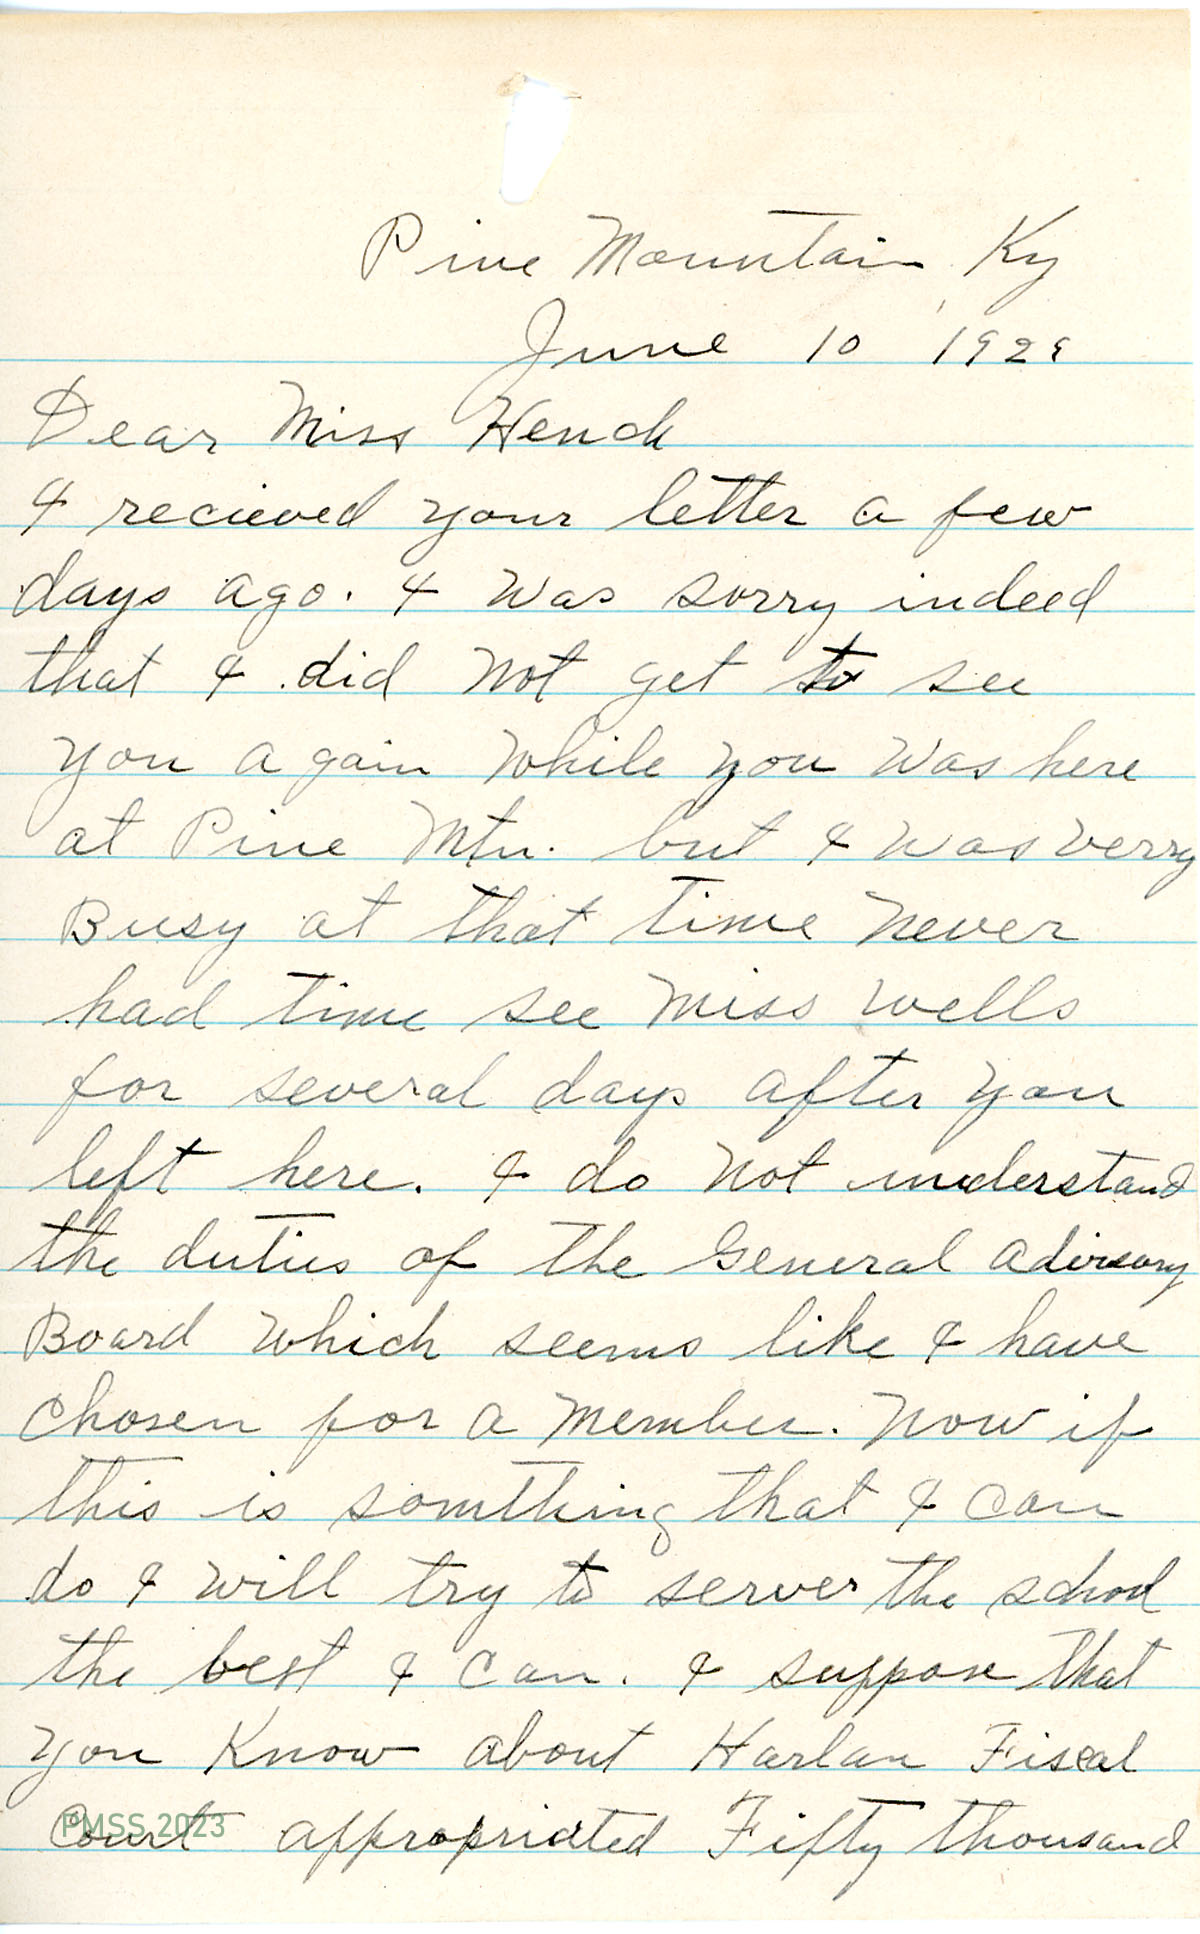 Pine Mountain Ky
June 10 1929
Dear Miss Hench
I recieved your letter a few
days ago. I was sorry indeed
that I did not get to see
you again while you was here
at Pine Mtn. but I was verry
Busy at that time never
had time see Miss Wells
for several days after you
left here. I do not understand
the duties of the General adivsory
Board which seems like I have
chosen for a member. Now if
this is somthing that I can
do I will try to server the school
the best I can. I suppose that
you Know about Harlan Fiscal
Court appropriated Fifty thousand
PMSS 2023